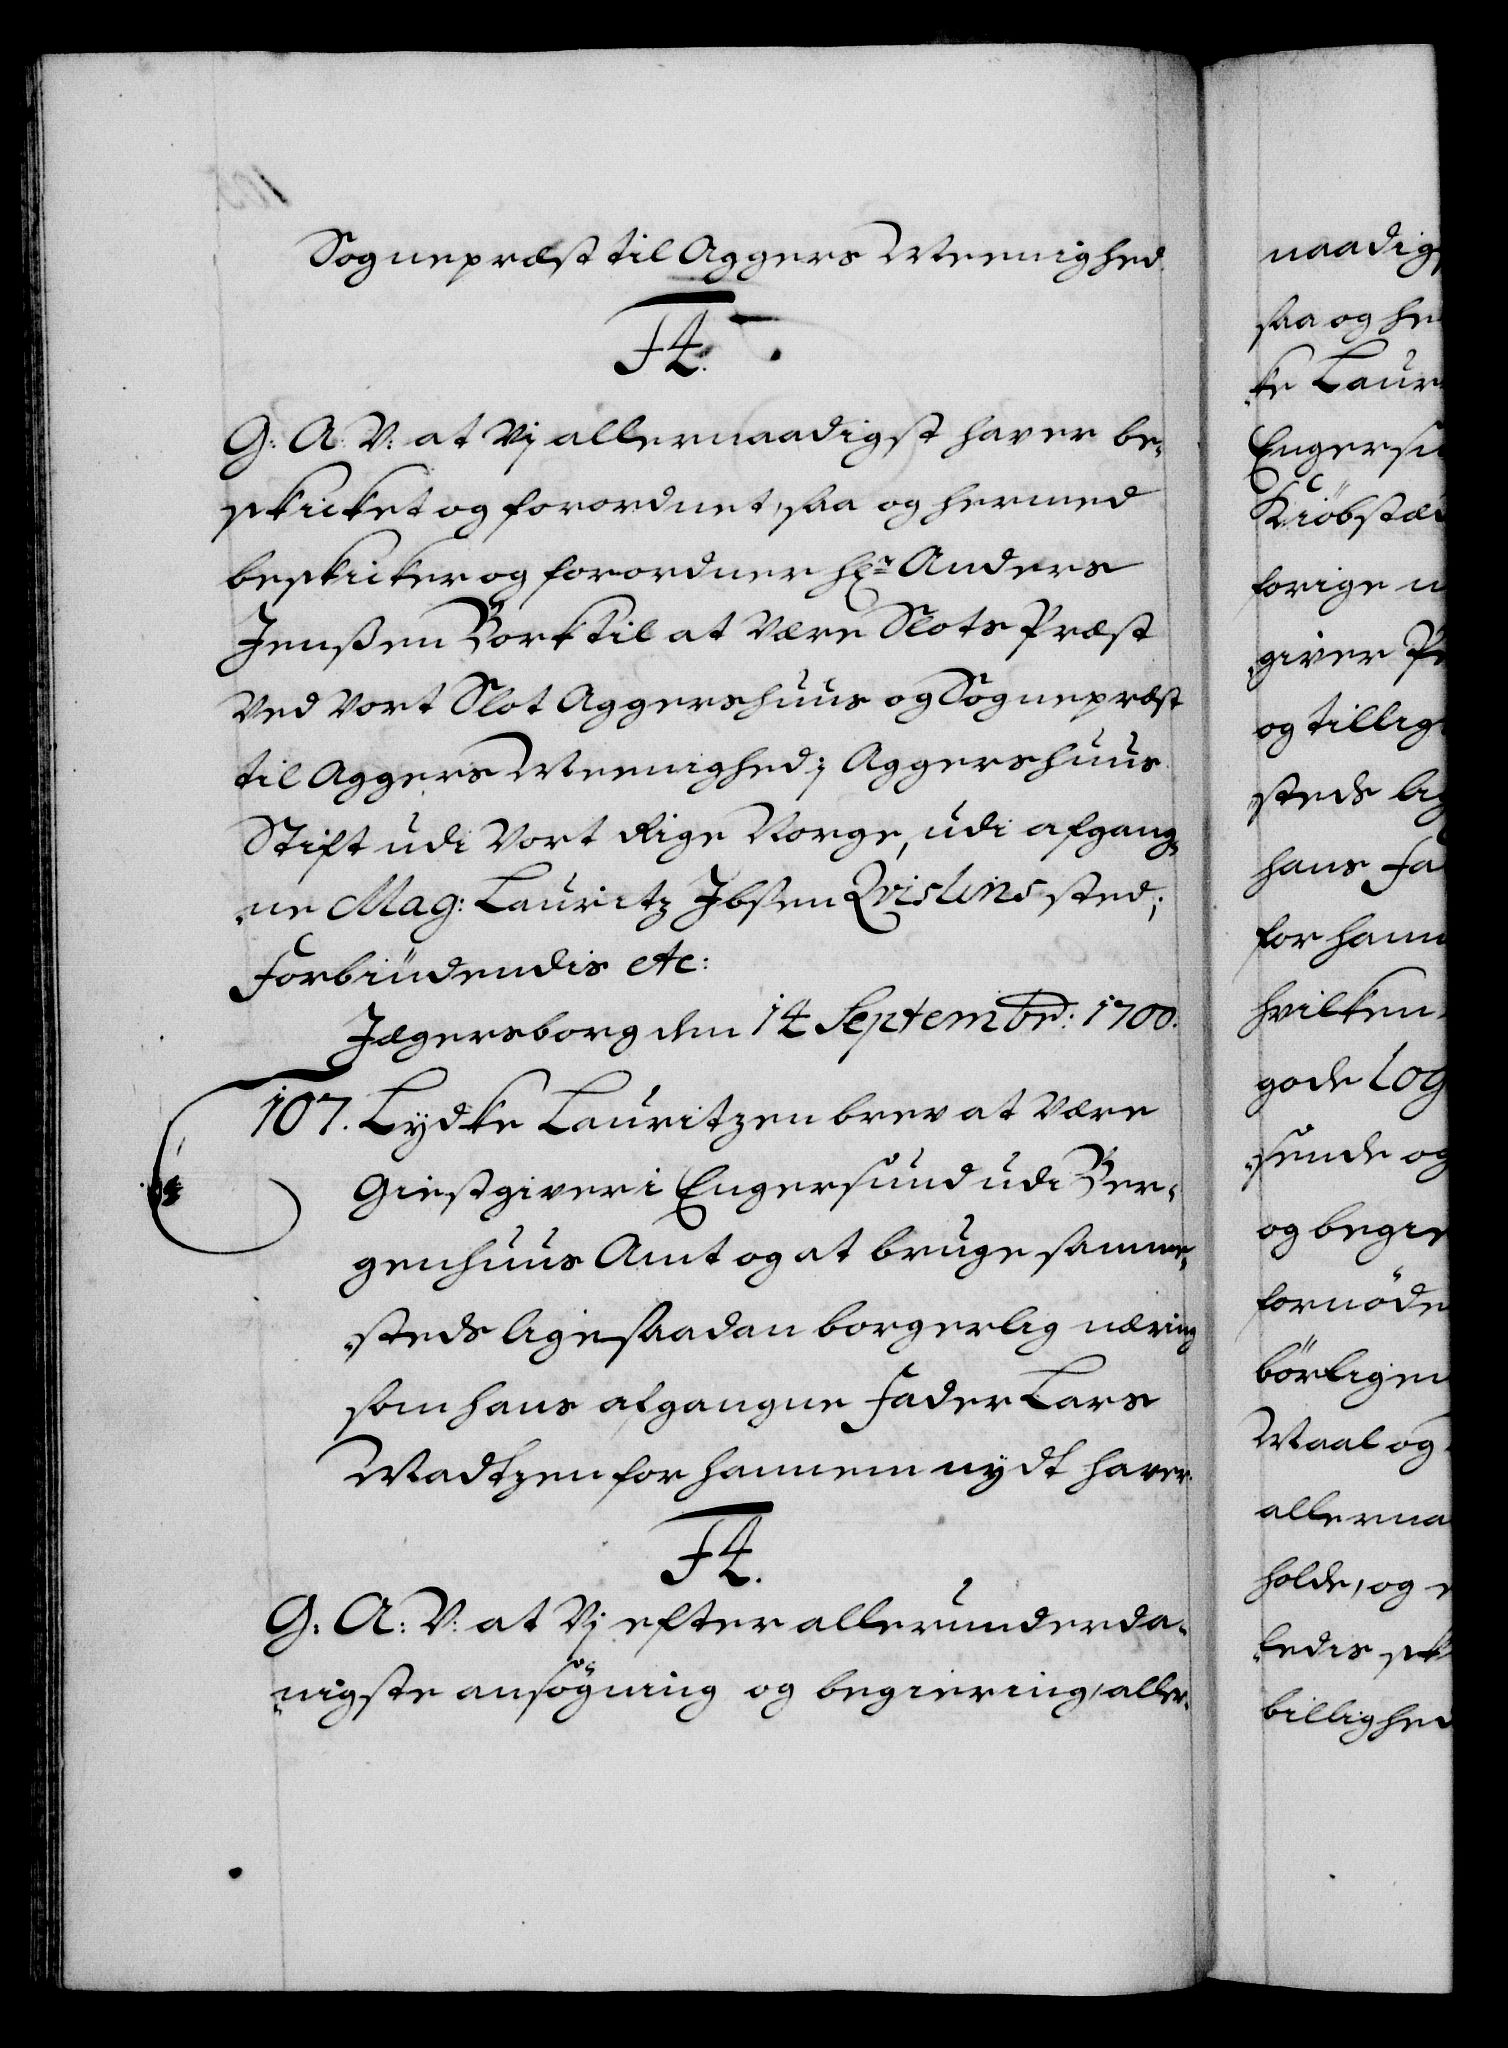 Sognepræst til Aggers Meenighed.
F4.
G: A: V: at Vj allernaadigst haver be-
skicket og forordnet, saa og hermed
beskicker og forordner Hr Anders
Jenssen Bork til at være Slots Præst
Ved Vort Slot Aggershuus og Sognepræst
til Aggers Meenighed; Aggershuus
Stift udi Vort Rige Norge, udi afgang-
ne Mag: Lauritz Ibsen Qvislins sted;
Forbiudendis etc:
Jægersborg den 14 Septembr: 1700.
107. Lydke Lauritzen brev at være
Giestgiver i Engersund udi Ber-
genhuus Amt og at bruge samme-
steds lige saadan borgerlig næring
som hans afgangne Fader Lars
Madtzen for hannem nydt haver.
F4.
G: A: V: at Vj efter allerunderda-
nigste ansøgning og begiering, aller-
naadigs
saa og he
ke Laur
Engersu
Kiöbstæd
forige
giver Pr
og tillig
steds lig
hans Fa
for hann
hvilken
gode log
sende og
og begie
fornöde
börligen
Maal og
allerna
holde, og
ledis sk
billighed